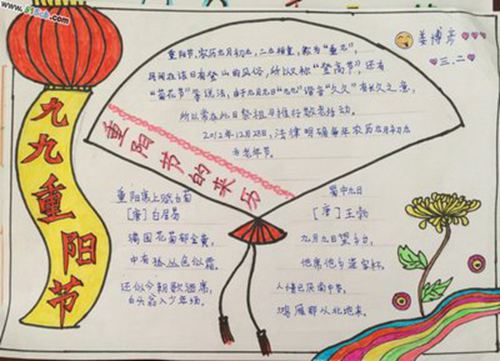 www.51bzb.com
九九重阳节
姜博彦
三.二
重阳节，农历九月初九，二九相重，称为"重九"，
民间在该日有登高的风俗，所以又称"登高节"，还有
"菊花节"等说法，由于九月九日"九九"谐音"久久"有长久之意，
所以常在此日祭祖与推行敬老活动。
2012年12月28日，法律明确每年农历九月初九
为老年节。
重阳节的来历
重阳席上赋白菊
[唐]白居易
满园花菊郁金黄，
中有孤丛色似霜。
还似今朝歌酒席，
白头翁入少年场。
蜀中九日
[唐]王勃
九月九日望乡台，
他席他乡送客杯。
人情已厌南中苦，
鸿雁那从北地来。